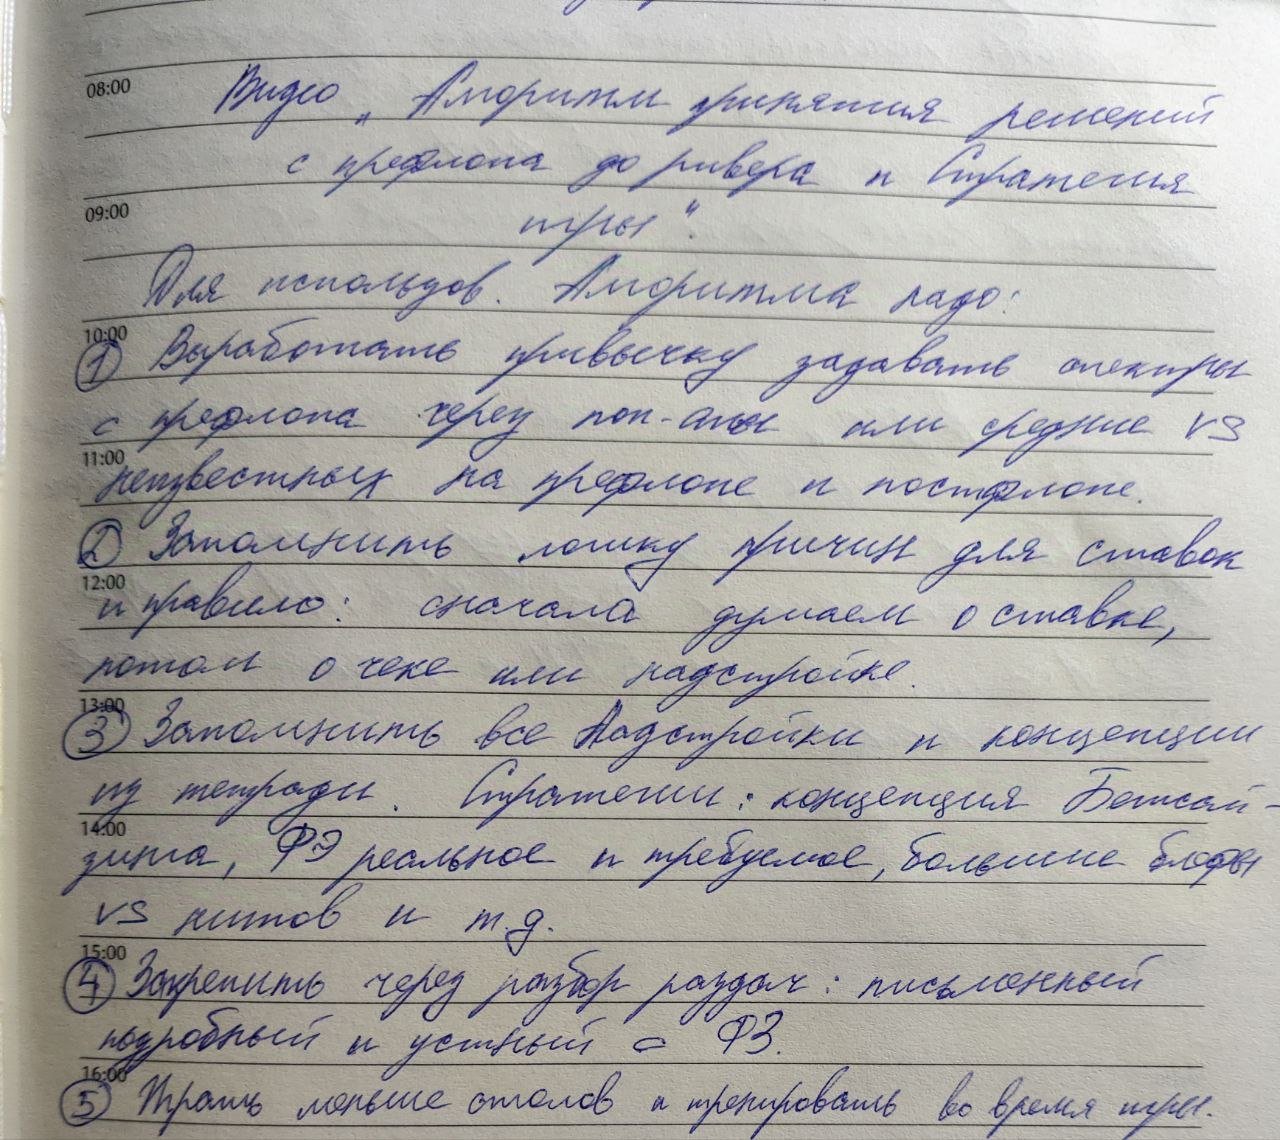 08:00
Видео „Алгоритм принятия решений
с префлопа до ривера и Стратегия
09:00
игры".
Для использов. Алгоритма надо:
10:00
① Выработать привычку задавать спектры
с префлопа через поп-апы или средние VS
11:00
неизвестных на префлопе и постфлопе.
② Запомнить логику причин для ставок
12:00
и правило: сначала думаем о ставке,
потом о чеке или надстройке.
13:00
③ Запомнить все Надстройки и концепции
из тетради. Стратегии: концепция Бетсай-
14:00
зинга, ФЭ реальное и требуемое, большие блефы
VS нитов и т.д.
15:00
④ Закрепить через разбор раздач: письменный
подробный и устный с ФЗ.
16:00
⑤ Играть меньше столов и тренировать во время игры.